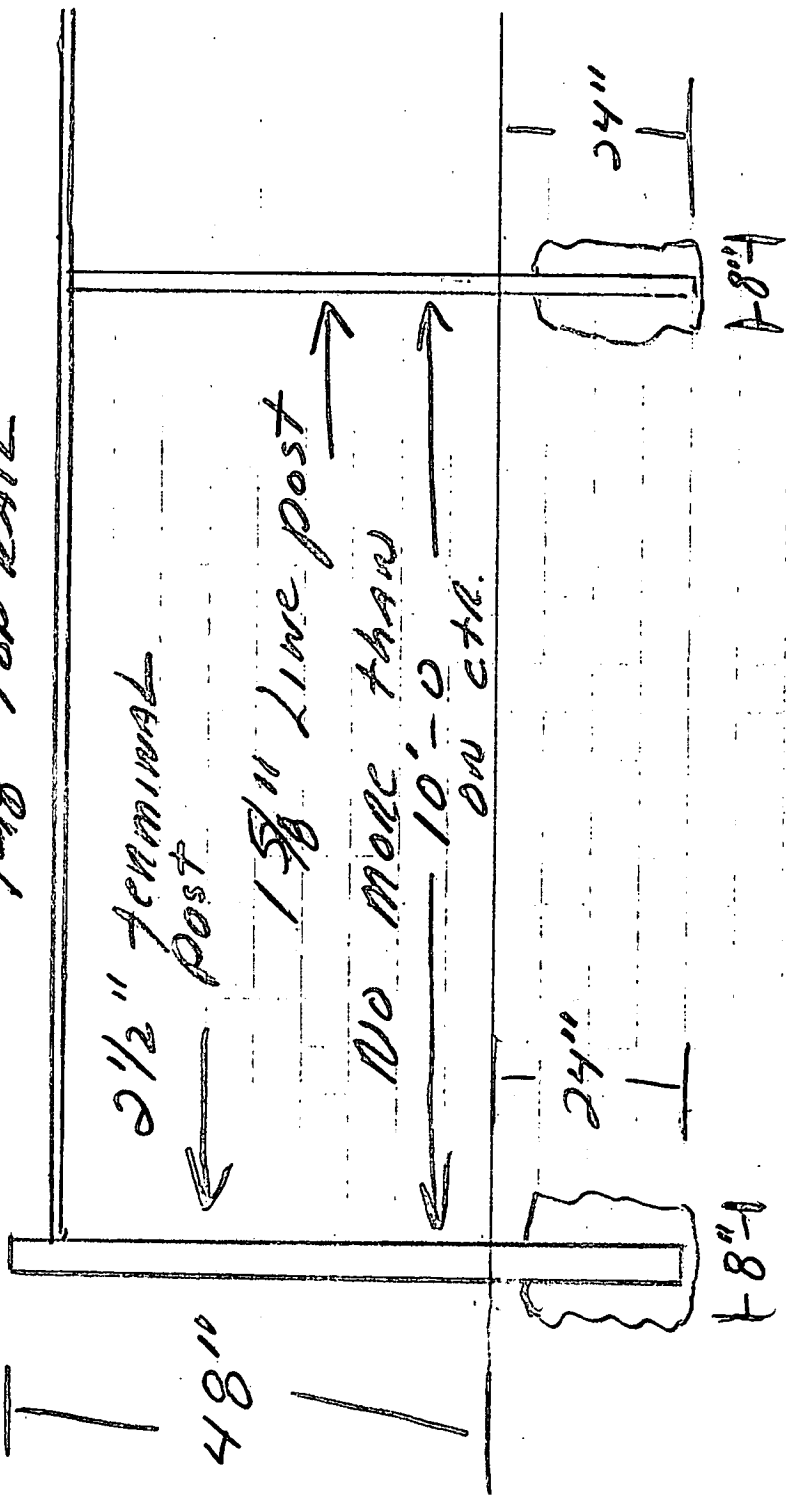 TOP RAIL
2 1/2" terminal
post
1 5/8" Line post
No more than
10'-0
on ctr.
48"
24"
24"
8"
8"